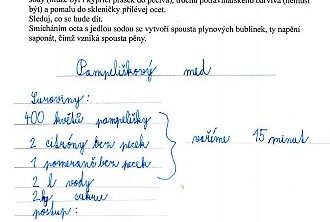 sody (může být i kypřicí prášek do pečiva), trochu potravinářského barviva (nemusí
být) a pomalu do skleničky přilévej ocet.
Sleduj, co se bude dít.
Smícháním octa s jedlou sodou se vytvoří spousta plynových bublinek, ty napění
saponát, čímž vzniká spousta pěny.
Pampeliškový med
Suroviny:
400 květů pampelišky
2 citróny bez pecek
1 pomeranč bez pecek
2 l vody
2kg cukru
vaříme 15 minut
postup: